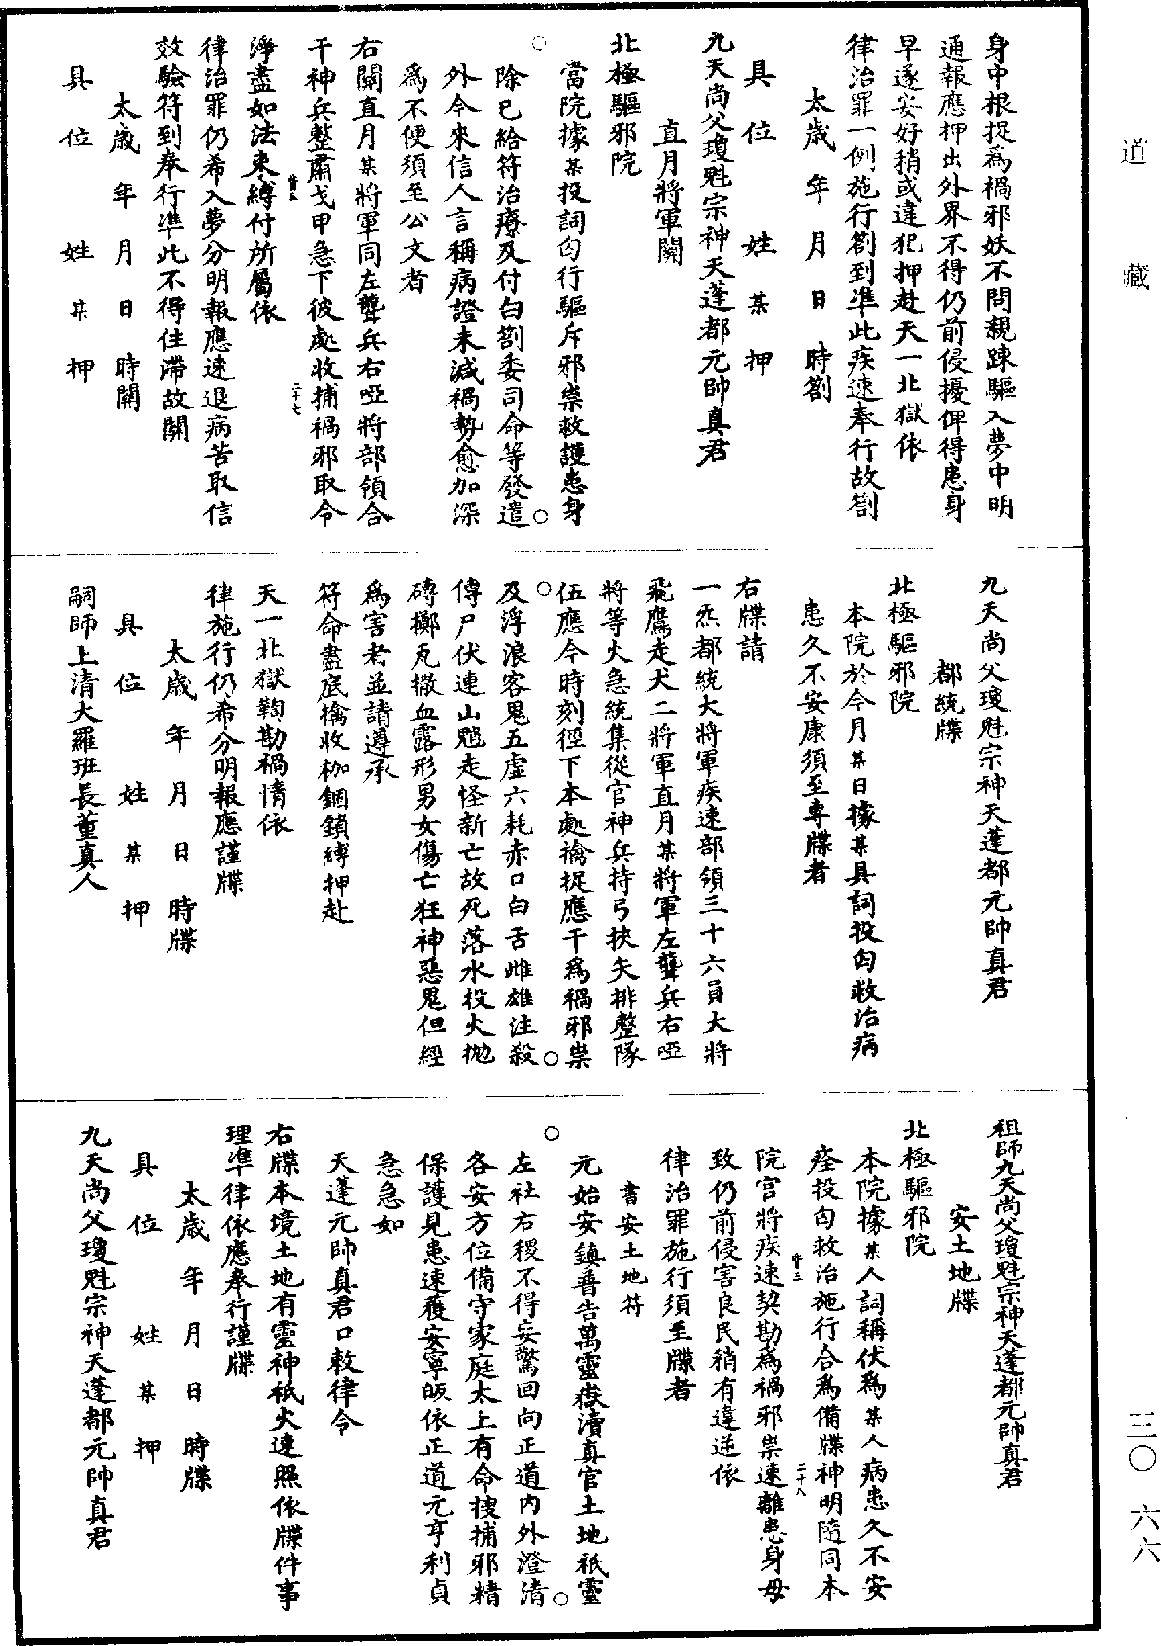 道藏
三〇
六六
身中根捉爲禍邪妖不問親踈驅入夢中明
通報應押出外界不得仍前侵擾俾得患身
早遂安好稍或違犯押赴天一北獄依
律治罪一例施行劄到準此疾速奉行故劄
太歲　年　月　日　時劄
具　位　姓　某　押
九天尚父瓊魁宗神天蓬都元帥真君
直月將軍關
北極驅邪院
當院據某投詞匄行驅斥邪祟救護患身
除已給符治療及付白劄委司命等發遣
外今來信人言稱病證未減禍勢愈加深
爲不便須至公文者
右關直月某將軍同左聾兵右啞將部領合
干神兵整肅戈甲急下彼處收捕禍邪取令
二十七
淨盡如法束縛付所屬依
律治罪仍希入夢分明報應速退病苦取信
效驗符到奉行準此不得住滯故關
太歲　年　月　日　時關
具　位　姓　某　押
九天尚父瓊魁宗神天蓬都元帥真君
都統牒
北極驅邪院
本院於今月某日據某具詞投匄救治病
患久不安康須至專牒者
右牒請
一炁都統大將軍疾速部領三十六員大將
飛鷹走犬二將軍直月某將軍左聾兵右啞
將等火急統集從官神兵持弓挾矢排整隊
伍應今時刻徑下本處擒捉應干爲禍邪祟
及浮浪客鬼五虛六耗赤口白舌雌雄注殺
傳尸伏連山魈走怪新亡故死落水投火拋
磚擲瓦撒血露形男女傷亡狂神惡鬼但經
爲害者並請遵承
符命盡底擒收枷錮鎖縛押赴
天一北獄鞫勘禍情依
律施行仍希分明報應謹牒
太歲　年　月　日　時牒
具　位　姓　某　押
嗣師上清大羅班長董真人
祖師九天尚父瓊魁宗神天蓬都元帥真君
安土地牒
北極驅邪院
本院據某人詞稱伏爲某人病患久不安
痊投匄救治施行合爲備牒神明隨同本
二十八
院官將疾速契勘爲禍邪祟速離患身毋
致仍前侵害良民稍有違逆依
律治罪施行須至牒者
書安土地符
元始安鎮普告萬靈嶽瀆真官土地祇靈
左社右稷不得妄驚回向正道內外澄清
各安方位備守家庭太上有命搜捕邪精
保護見患速獲安寧皈依正道元亨利貞
急急如
天蓬元帥真君口敕律令
右牒本境土地有靈神祇火速照依牒件事
理準律依應奉行謹牒
太歲　年　月　日　時牒
具　位　姓　某　押
九天尚父瓊魁宗神天蓬都元帥真君